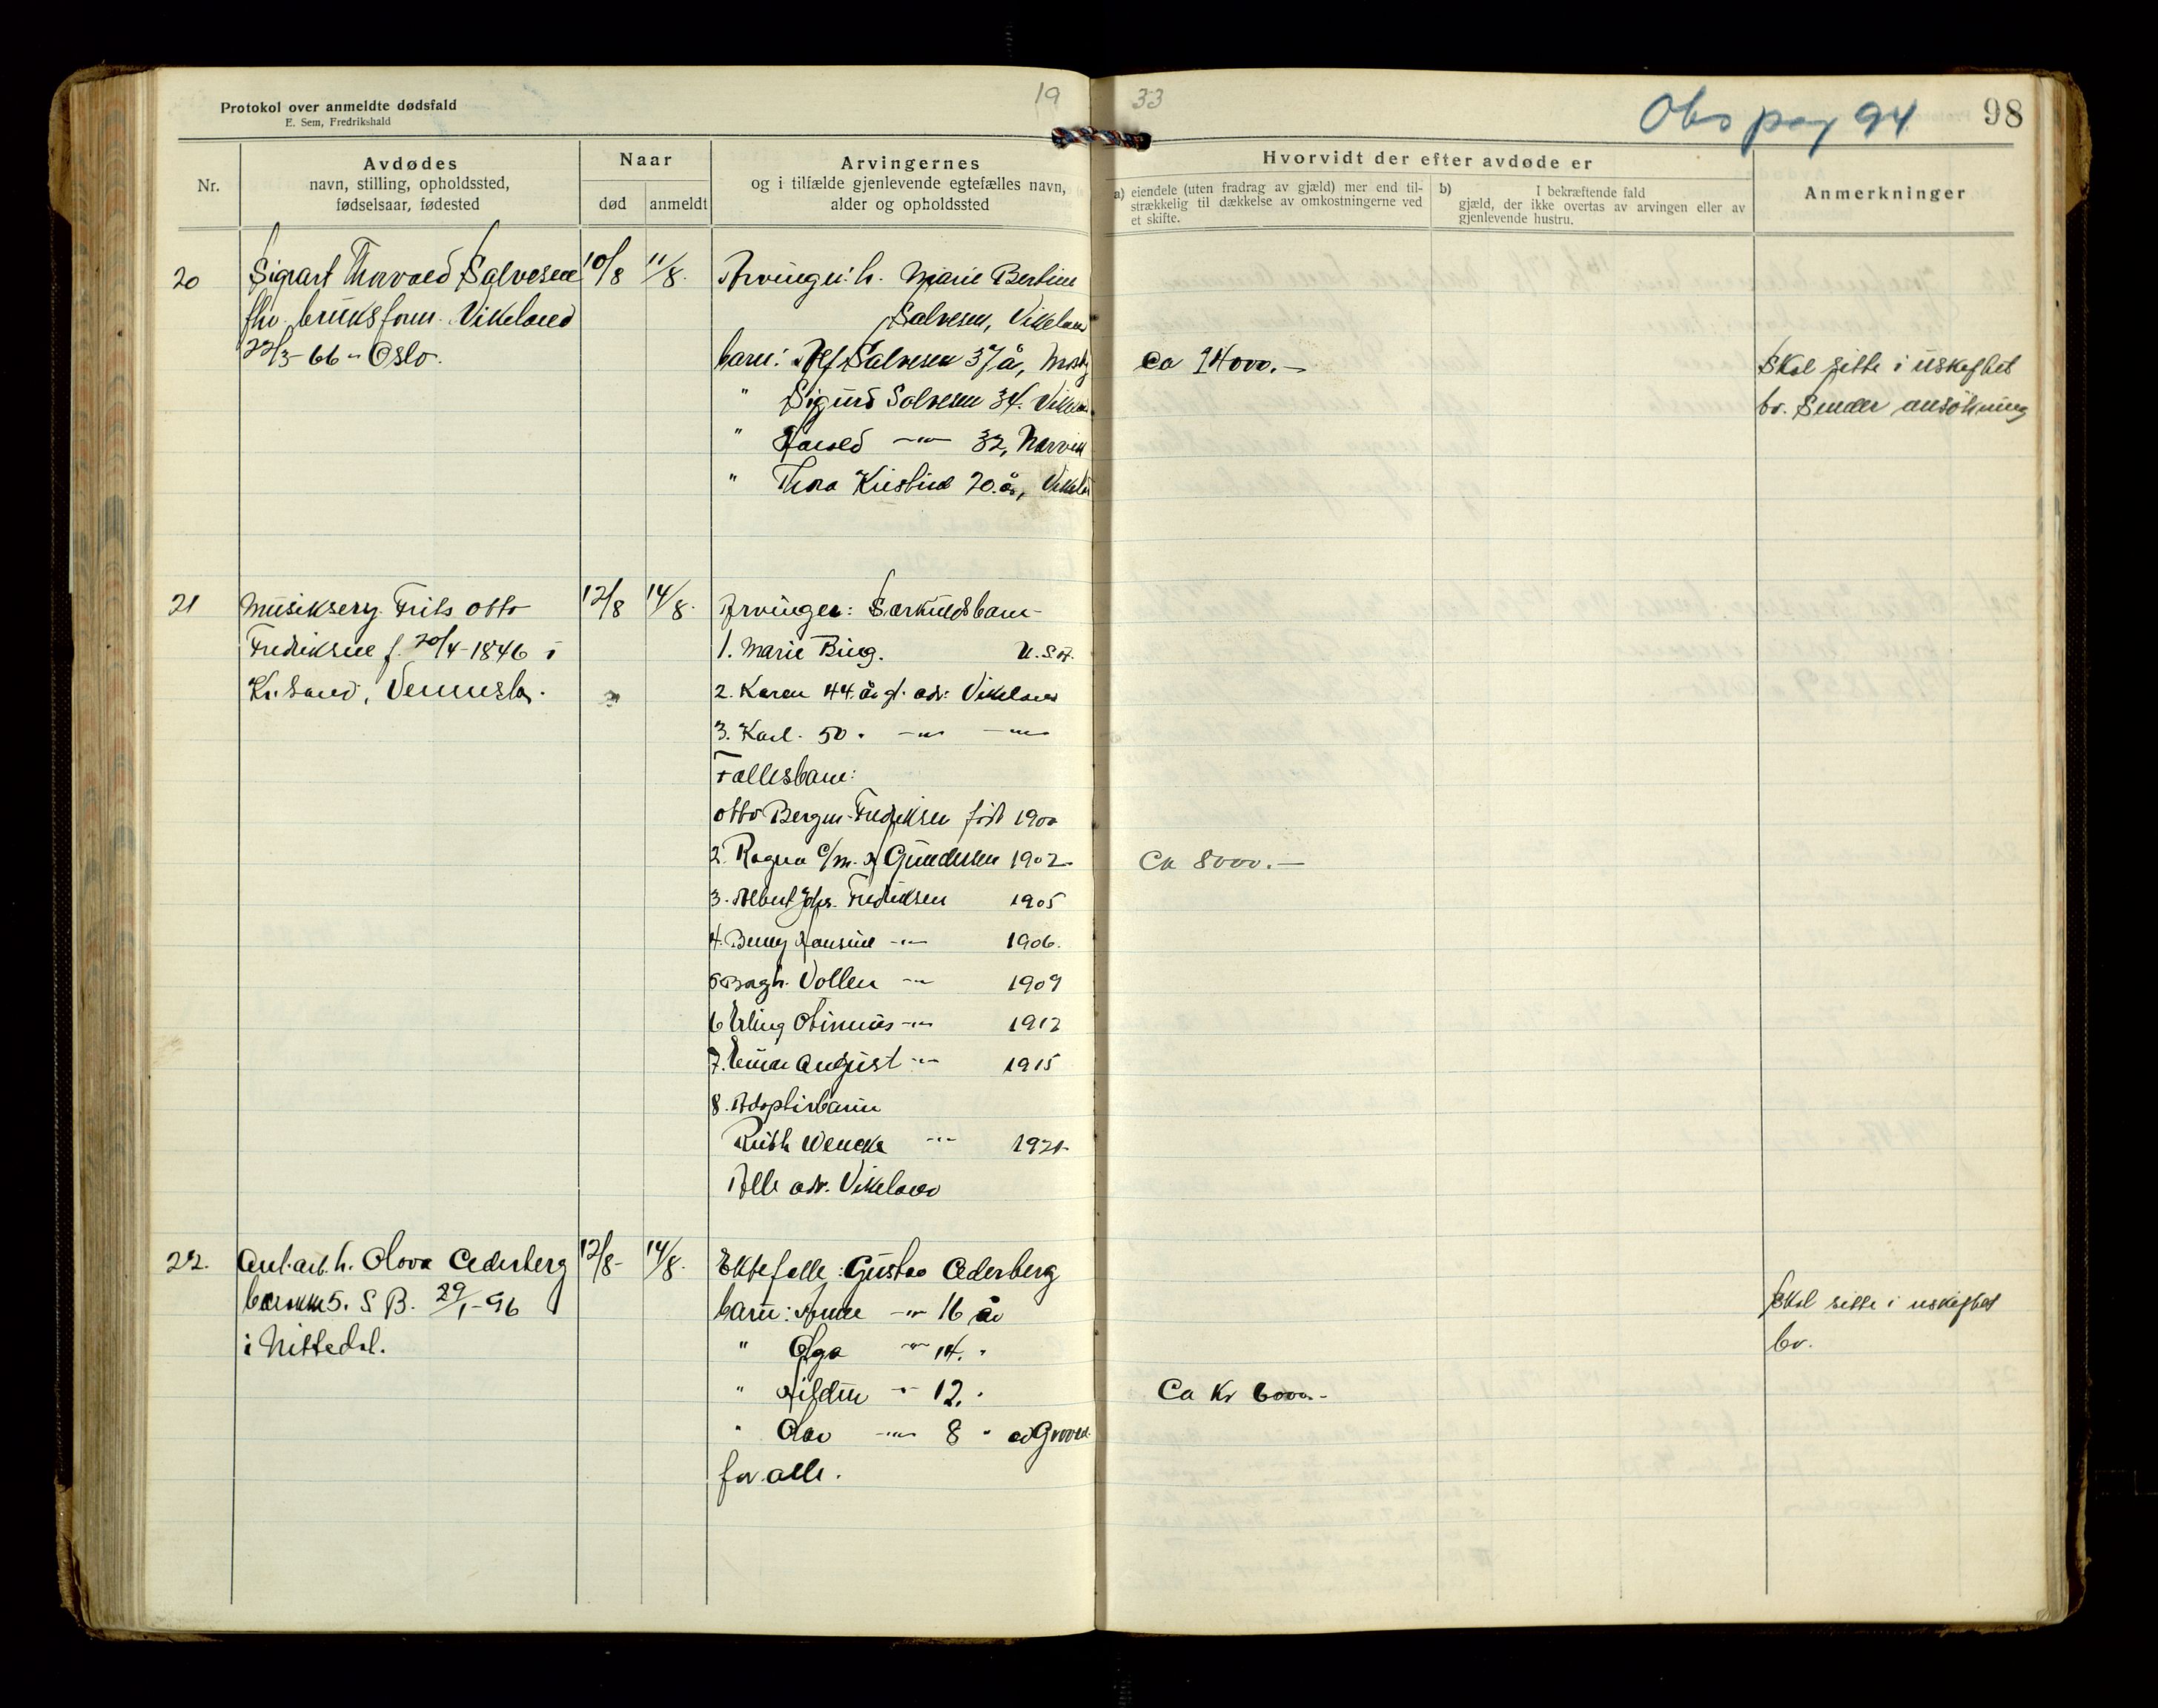 Protokol over anmeldte dødsfald
E. Sem, Fredrikshald
19 33
Obs pag 94
98
Nr.
Avdødes
navn, stilling, opholdssted,
fødselsaar, fødested
Naar
død
anmeldt
Arvingernes
og i tilfælde gjenlevende egtefælles navn,
alder og opholdssted
Hvorvidt der efter avdøde er
a) eiendele (uten fradrag av gjæld) mer end til-
strækkelig til dækkelse av omkostningerne ved
et skifte.
b) I bekræftende fald
gjæld, der ikke overtas av arvingen eller av
gjenlevende hustru.
Anmerkninger
20 Sigvart Thorvald Salvesen 10/8 11/8. Arvinger: h. Marie Bertine
fhv. bruksform. Vikeland Salvesen, Vikeland
22/3-66 - Oslo. barn: Alf Salvesen 37 år, Mosby ca 14000.— Skal sitte i uskiftet
" Sigurd Salvesen 34. bo. Sender ansökning
" Harald —"— 32, Narvik
" Thora Kristine 20 år,
21 Musikserg. Frits Otto 12/8 14/8. Arvinger: Særkuldsbarn-
Fredriksen f. 20/4-1846 i 1. Marie Bing. U.S.A.
Kr.sand, Vennesla. 2. Karen 44 år gl. adr. Vikeland
3. Karl. 50 " —"— —"—
Fællesbarn:
Otto Bergm. Fredriksen født 1900
2. Ragna g/m. Gundersen 1902 Ca 8000.—
3. Albert Johs. Fredriksen 1905
4. Benny Hansine —"— 1906.
5 Ragh. Vollen —"— 1909
6 Erling —"— 1912
7. Einar August —"— 1915
8. Adoptivbarn
Ruth Wencke —"— 1921
Alle adr. Vikeland
22. Anl.arb. h. Olova Cederberg 12/8- 14/8. Ektefelle: Gustav Cederberg
barakke 5. S B. 29/1-96 barn: Arne —"— 16 år Skal sitte i uskiftet
i Nittedal. " Olga —"— 14. " bo.
" Hilstur —"— 12. " Ca Kr 6000.-
" Olav —"— 8 "
for alle.